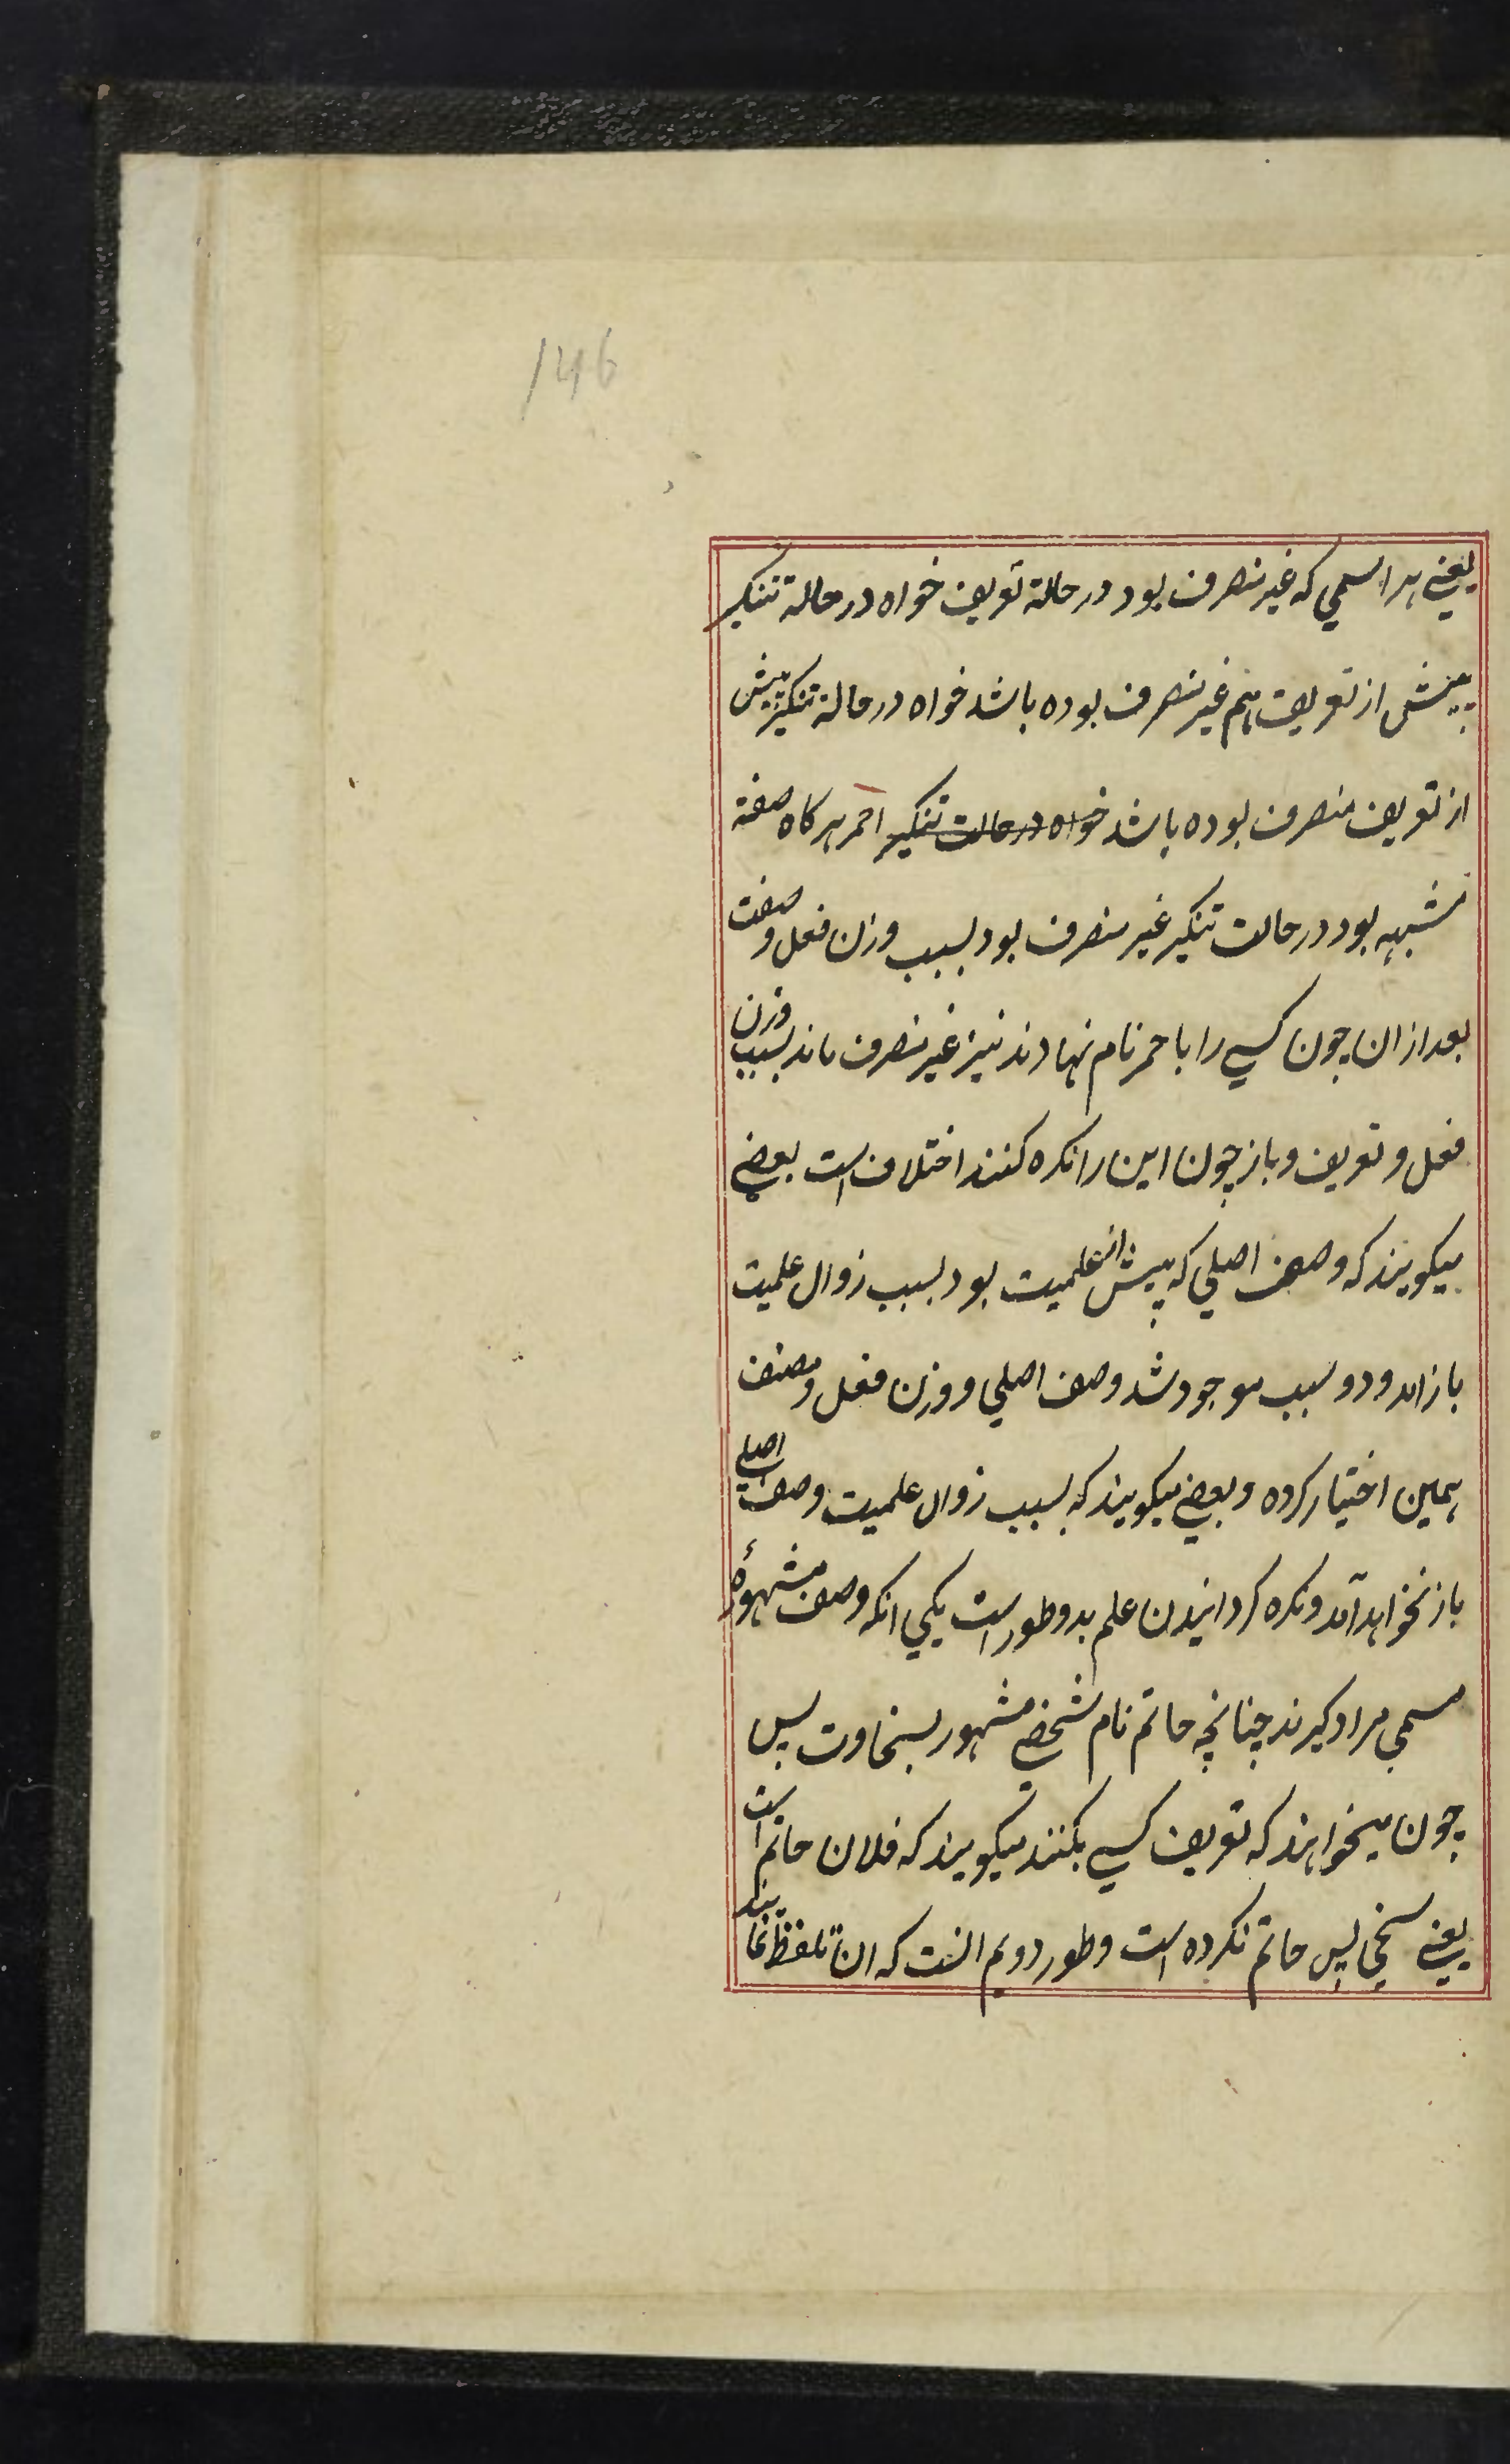 146
یعنے ہر اسمی که غیر منصرف بود در حالة تعریف خواه در حالة تنکیر
پیش از تعریف ہم غیر منصرف بوده باشد خواه در حالة تنکیر پیش
از تعریف منصرف بوده باشد خواه در حالت تنکیر احمر ہر کاه صفة
مشبهه بود در حالت تنکیر غیر منصرف بود بسبب وزن فعل و صفت
بعد از ان چون کسے را باحمر نام نهادند نیز غیر منصرف ماند بسبب وزن
فعل و تعریف و باز چون این را نکره کنند اختلاف است بعضے
میکویند که وصف اصلی که پیش از علمیت بود بسبب زوال علمیت
باز امد و دو سبب موجود شد وصف اصلی و وزن فعل و مصنف
ہمین اختیار کرده و بعضے میکویند که بسبب زوال علمیت وصف اصلے
باز نخواہد آمد و نکره کردانیدن علم بدو طور است یکی انکه وصف مشهورۂ
مسمی مراد کیرند چنانچه حاتم نام شخصے مشهور بسخاوت پس
چون میخواہند که تعریف کسے بکنند میکویند که فلان حاتم است
یعنے سخی پس حاتم نکره است و طور دویم انست که ان تلفظ نمایند